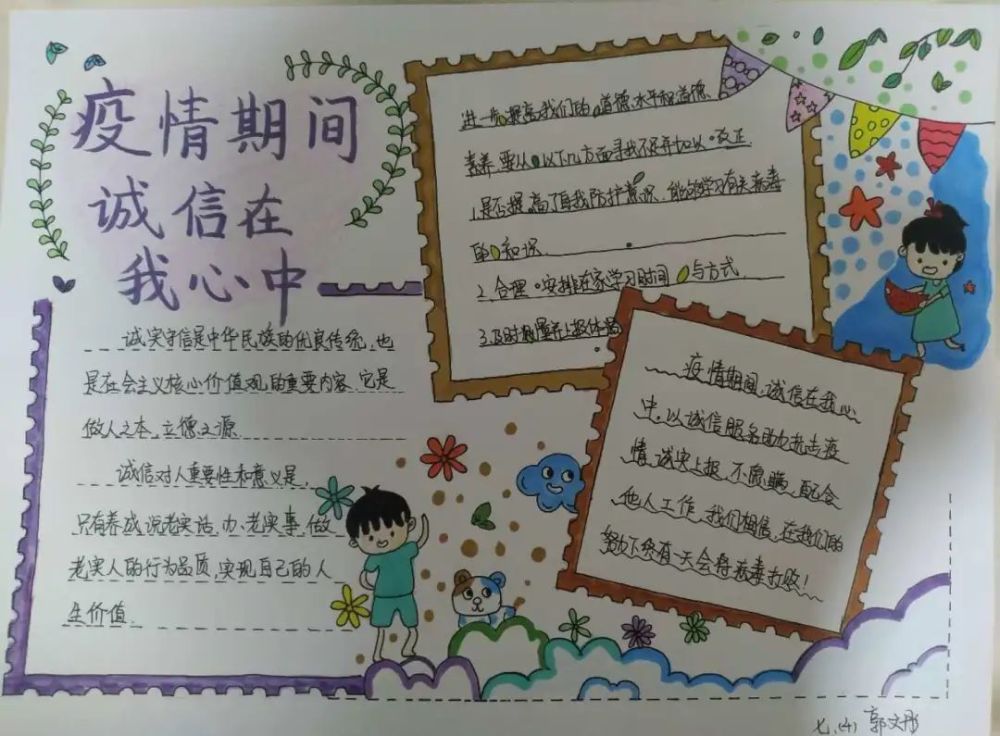 疫情期间
诚信在
我心中
诚实守信是中华民族的优良传统,也
是社会主义核心价值观的重要内容,它是
做人之本,立德之源
诚信对人重要性和意义是,
只有养成说老实话,办老实事,做
老实人的行为品质,实现自己的人
生价值.
进一步提高我们的道德水平和道德
素养,要从以下几方面寻找不足并加以改正
1.是否提高了自我防护意识,能够学习有关病毒
的知识.
2.合理安排在家学习时间与方式.
3.及时测量并上报体温
疫情期间,诚信在我心
中,以诚信服务助力抗击疫
情,诚实上报,不隐瞒,配合
他人工作,我们相信,在我们的
努力下终有一天会将病毒打败!
七.(4) 郭文彤